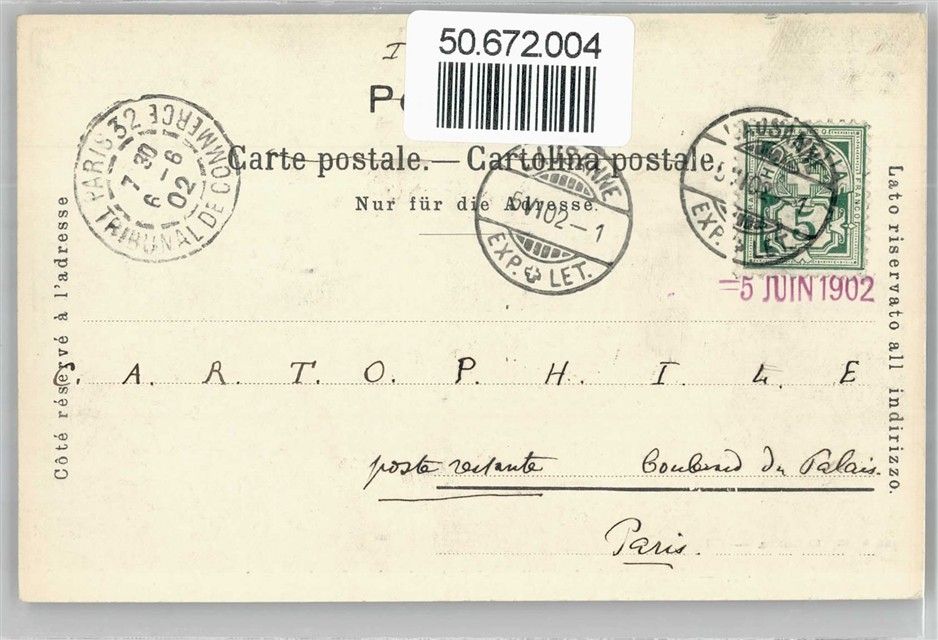 50.672.004
Carte postale. — Cartolina postale.
Nur für die Adresse.
PARIS 32
7 30
6 - 6
02
TRIBUNAL DE COMMERCE
LAUSANNE
5 VI 02 - 1
EXP. LET.
LAUSANNE
EXP. LET.
5
FRANCO
=5 JUIN 1902
Côté réservé à l'adresse
Lato riservato all indirizzo.
C. A. R. T. O. P. H. I. L. E
poste restante Boulevard du Palais.
Paris.